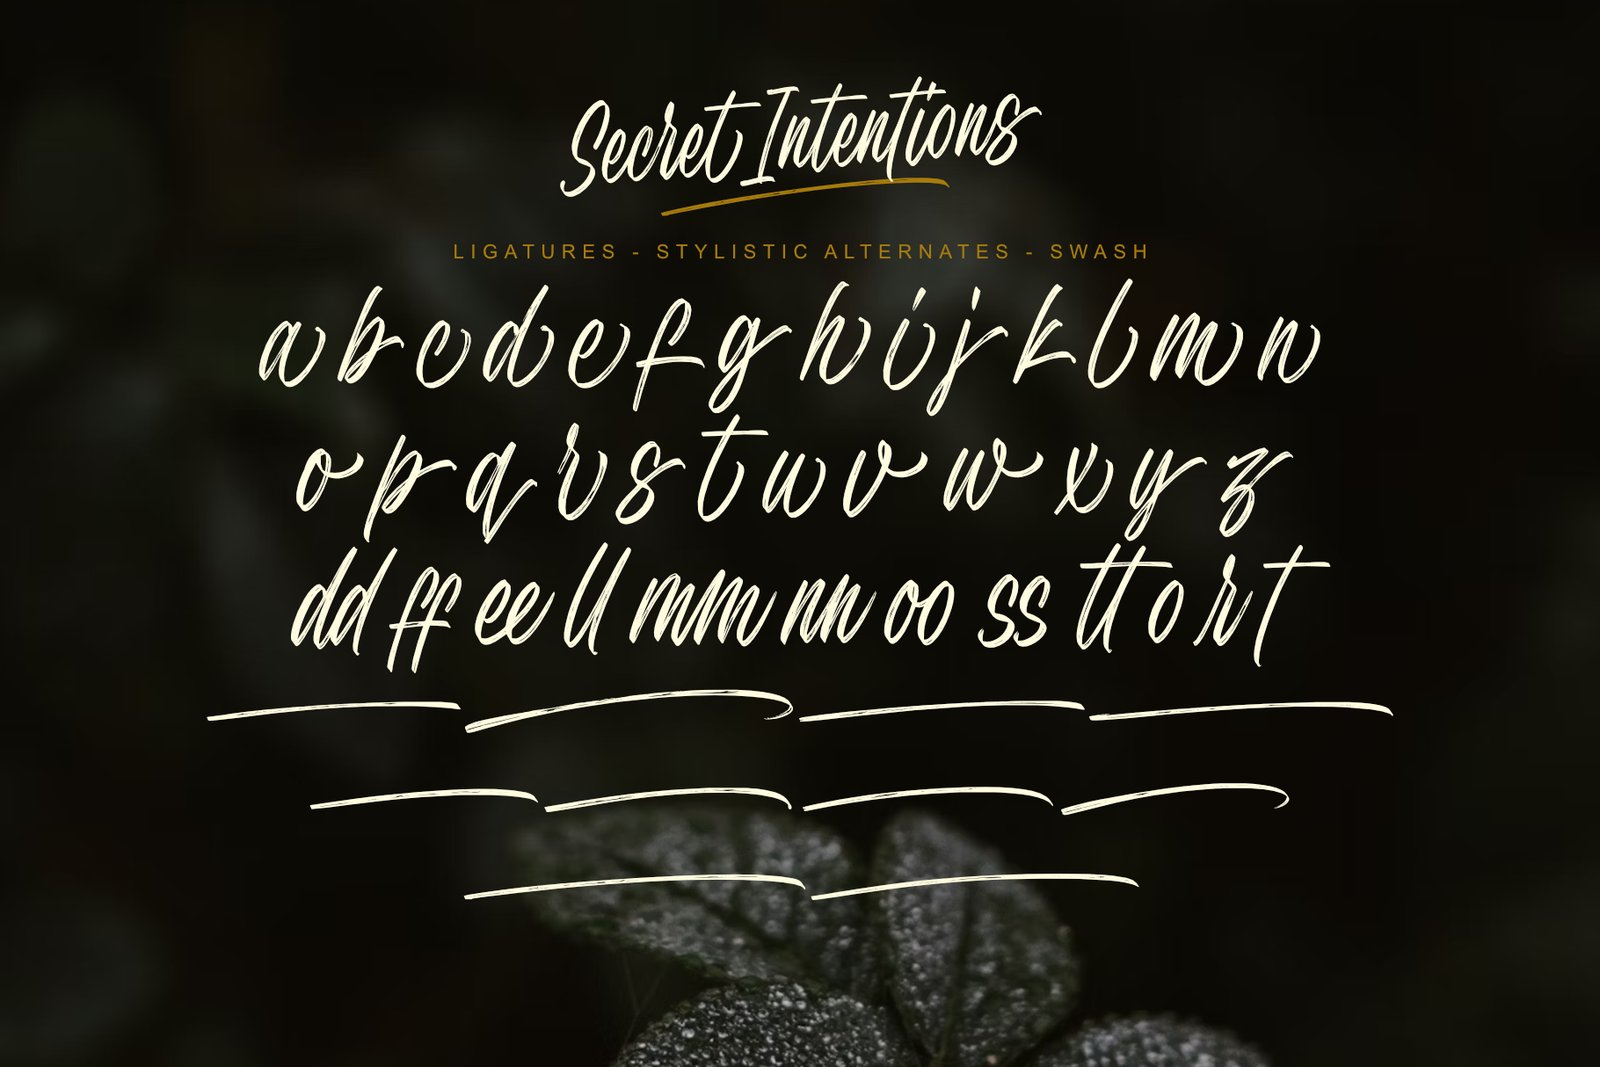 Secret Intentions
LIGATURES - STYLISTIC ALTERNATES - SWASH
a b c d e f g h i j k l m n
o p q r s t u v w x y z
dd ff ee ll mm nn oo ss tt o r t